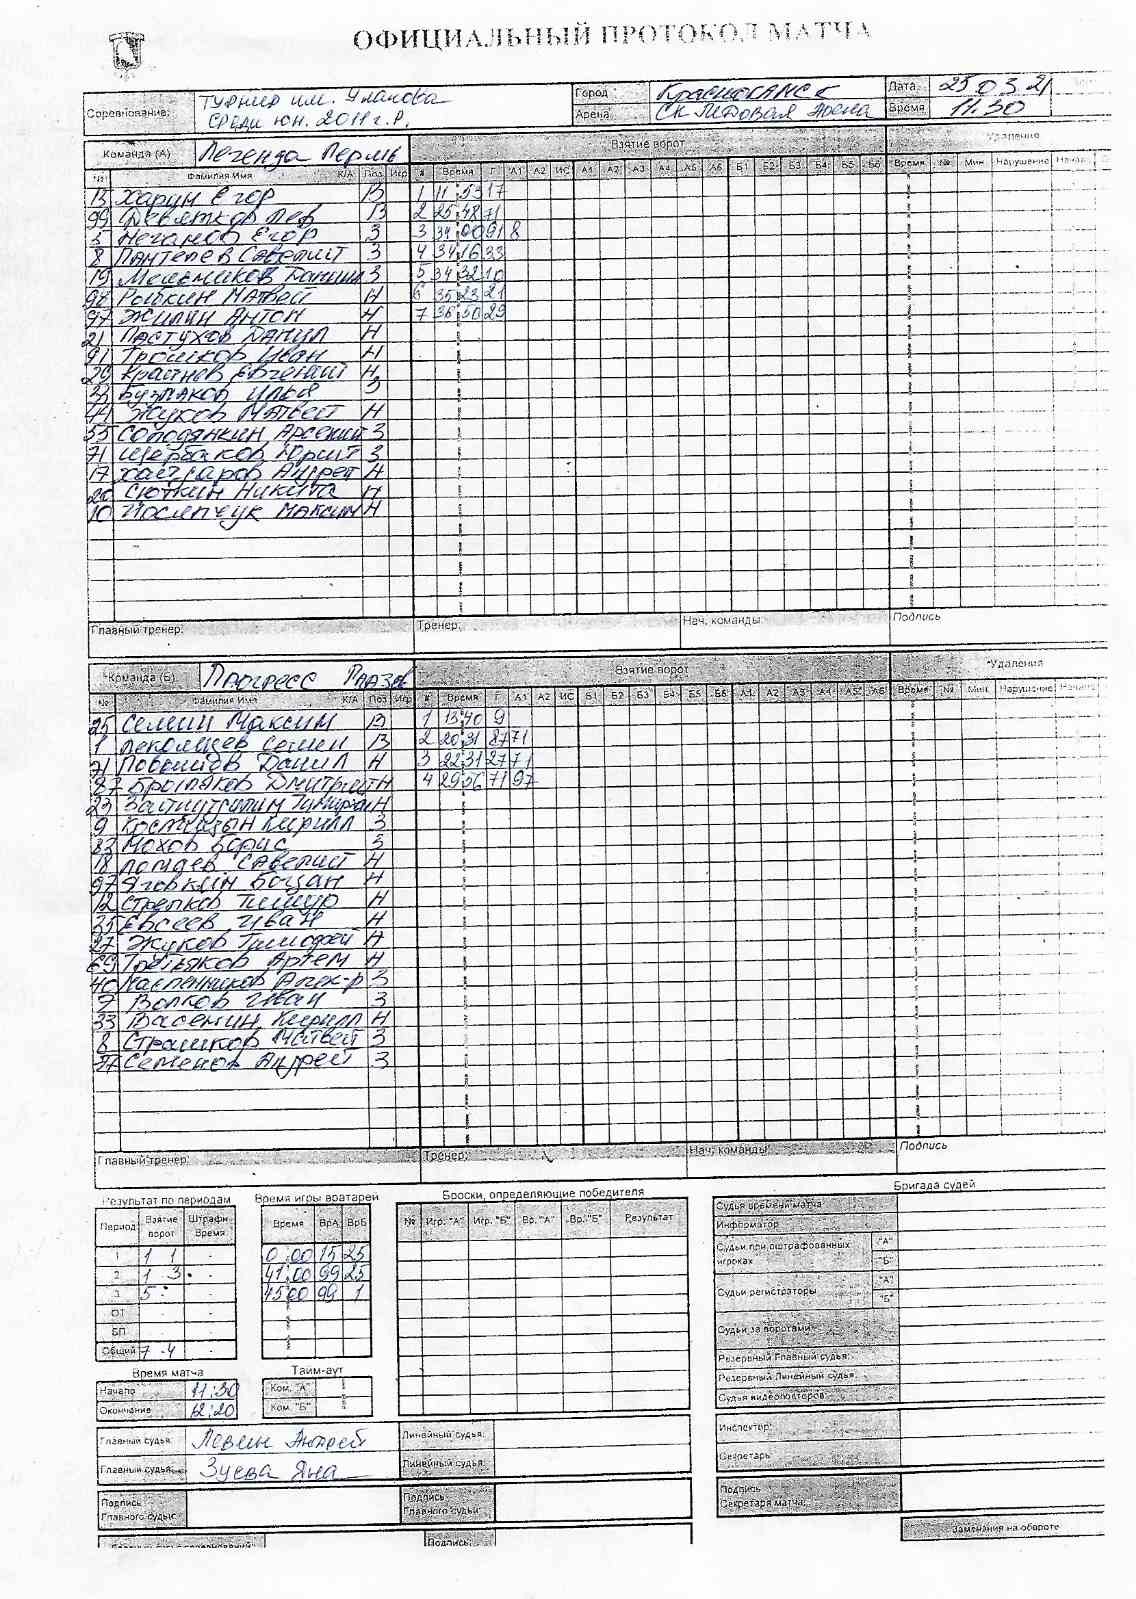 ОФИЦИАЛЬНЫЙ ПРОТОКОЛ МАТЧА
Соревнование: Турнир им. Улакова среди юн. 2011 г.р.
Город Краснокамск Дата 25 03 21
Арена СК Ледовая Арена Время 11.30
Команда (А) Легенда Пермь Взятие ворот Удаления
№ Фамилия Имя К/А Поз Игр # Время Г А1 А2 ИС А1 А2 А3 А4 А5 А6 Б1 Б2 Б3 Б4 Б5 Б6 Время № Мин Нарушение
Харин Егор В 1 11:53 17
99 Девятков Лев В 2 25:48 71
Неганов Егор З 3 34:00 91 8
8 Пантелеев Савелий З 4 34:16 33
19 Мельников Даниил З 5 34:32 10
98 Рошкин Матвей Н 6 35:23 21
97 Жилин Антон Н 7 36:50 29
21 Пастухов Данил Н
91 Трошков Иван Н
29 Крайнев Евгений Н
33 Бузмаков Илья З
Жуков Матвей Н
55 Солодянкин Арсений З
71 Щербаков Юрий З
17 Андрей Н
Сюткин Никита Н
10 Посляпчук Максим Н
Главный тренер: Тренер: Нач. команды: Подпись
Команда (Б) Прогресс Глазов Взятие ворот Удаления
№ Фамилия Имя К/А Поз Игр # Время Г А1 А2 ИС Б1 Б2 Б3 Б4 Б5 Б6 А1 А2 А3 А4 А5 А6 Время № Мин Нарушение
25 Семин Максим В 1 13:40 9
1 Семен В 2 20:31 87 71
71 Данил Н 3 22:31 27 71
87 Бронзаков Дмитрий Н 4 29:56 71 97
23 Н
9 Кирилл З
Мохов Борис З
18 Ломаев Савелий Н
97 Яговкин Богдан Н
12 Стрелков Тимур Н
Евсеев Иван Н
27 Жуков Тимофей Н
69 Третьяков Артем Н
40 Масленников Алек-р З
7 Волков Иван З
33 Васенин Кирилл Н
8 Страшков Матвей З
Семенов Андрей З
Главный тренер: Тренер: Нач. команды: Подпись
Результат по периодам Время игры вратарей Броски, определяющие победителя Бригада судей
Период Взятие ворот Штрафн. Время
Время ВрА ВрБ
№ Игр. "А" Игр. "Б" Вр. "А" Вр. "Б" Результат
1 1 1 0:00 15 25
2 1 3 41:00 99 25
3 5 45:00 99 1
ОТ
БП
Общий 7 4
Судья времени матча
Информатор
Судьи при оштрафованных игроках "А" "Б"
Судьи регистраторы "А" "Б"
Судьи за воротами
Резервный Главный судья:
Резервный Линейный судья
Судья видеоповторов:
Время матча Тайм-аут
Начало 11:30 Ком. "А"
Окончание 12:20 Ком. "Б"
Главный судья: Левин Андрей Линейный судья: Инспектор:
Главный судья: Зуева Яна Линейный судья: Секретарь
Подпись Главного судьи: Подпись Главного судьи: Подпись Секретаря матча:
Замечания на обороте
Подпись: